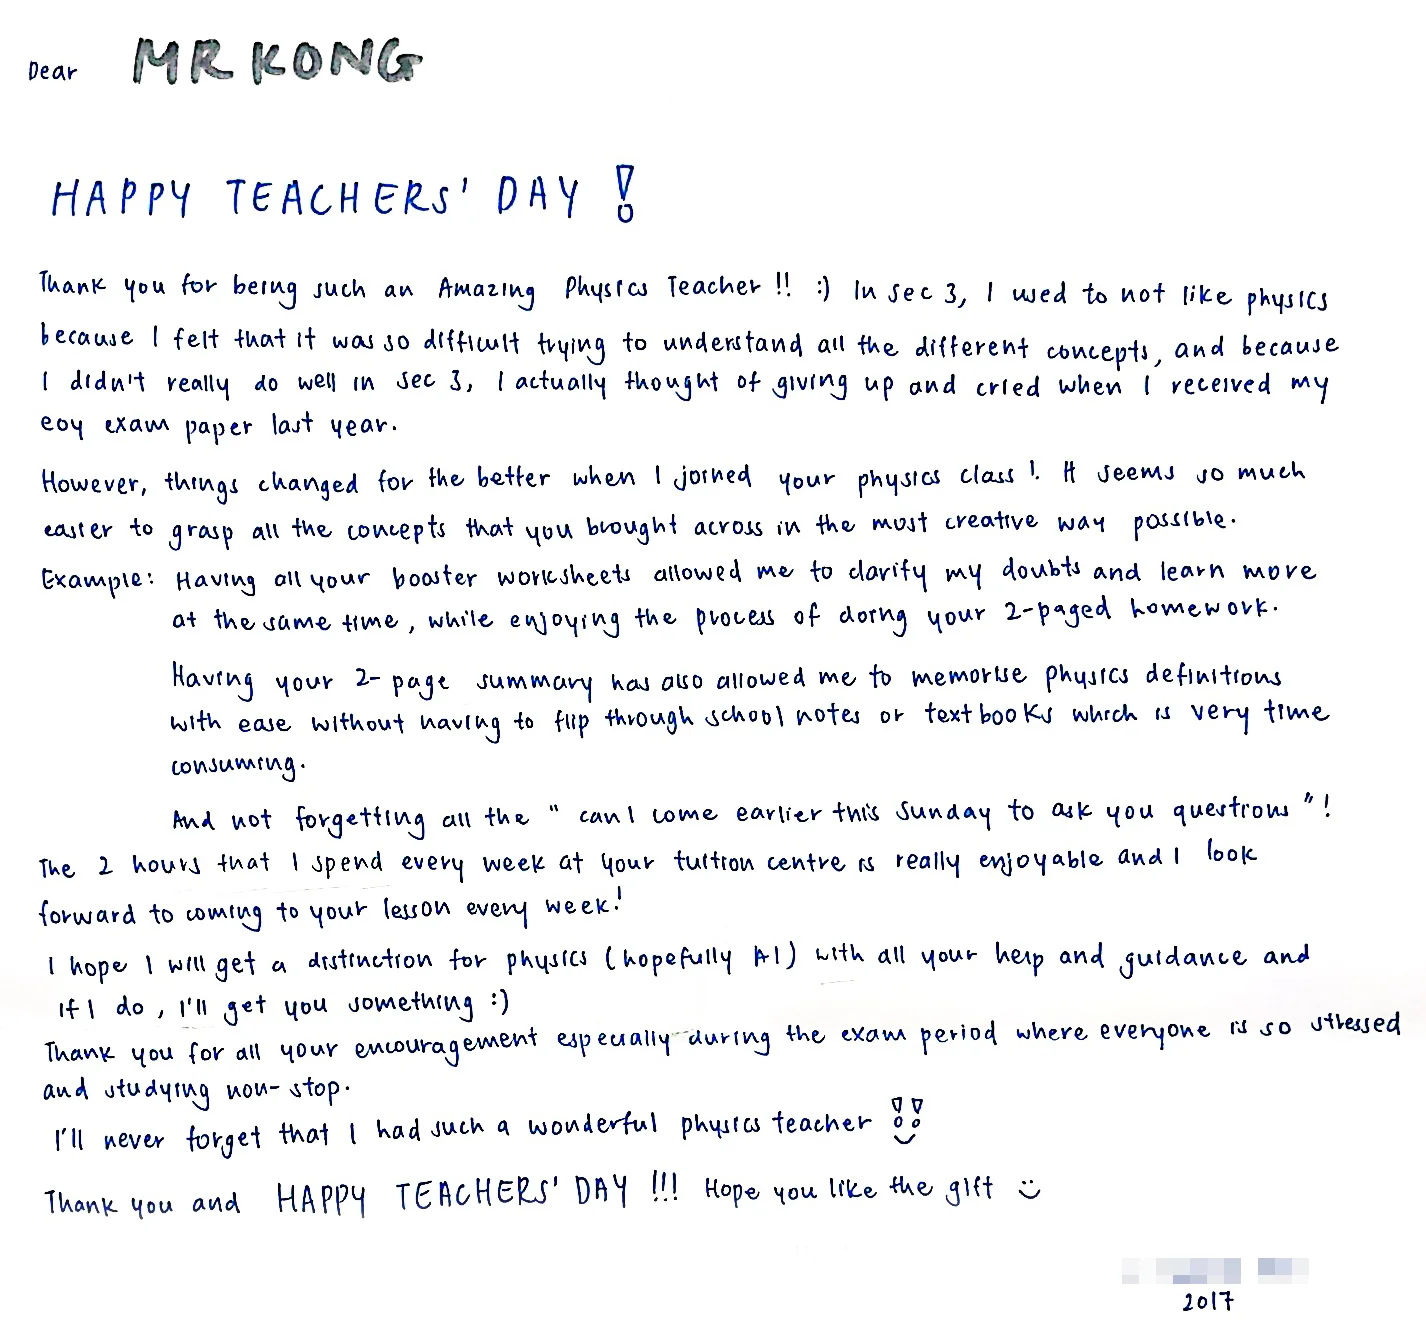 Dear MR KONG
HAPPY TEACHERS' DAY !
Thank you for being such an Amazing Physics Teacher !! :) In sec 3, I used to not like physics
because I felt that it was so difficult trying to understand all the different concepts, and because
I didn't really do well in sec 3, I actually thought of giving up and cried when I received my
eoy exam paper last year.
However, things changed for the better when I joined your physics class! It seems so much
easier to grasp all the concepts that you brought across in the most creative way possible.
Example: Having all your booster worksheets allowed me to clarify my doubts and learn more
at the same time, while enjoying the process of doing your 2-paged homework.
Having your 2-page summary has also allowed me to memorise physics definitions
with ease without having to flip through school notes or textbooks which is very time
consuming.
And not forgetting all the "can I come earlier this Sunday to ask you questions"!
The 2 hours that I spend every week at your tuition centre is really enjoyable and I look
forward to coming to your lesson every week!
I hope I will get a distinction for physics (hopefully A1) with all your help and guidance and
if I do, I'll get you something :)
Thank you for all your encouragement especially during the exam period where everyone is so stressed
and studying non-stop.
I'll never forget that I had such a wonderful physics teacher !!
Thank you and HAPPY TEACHERS' DAY !!! Hope you like the gift :)
2017